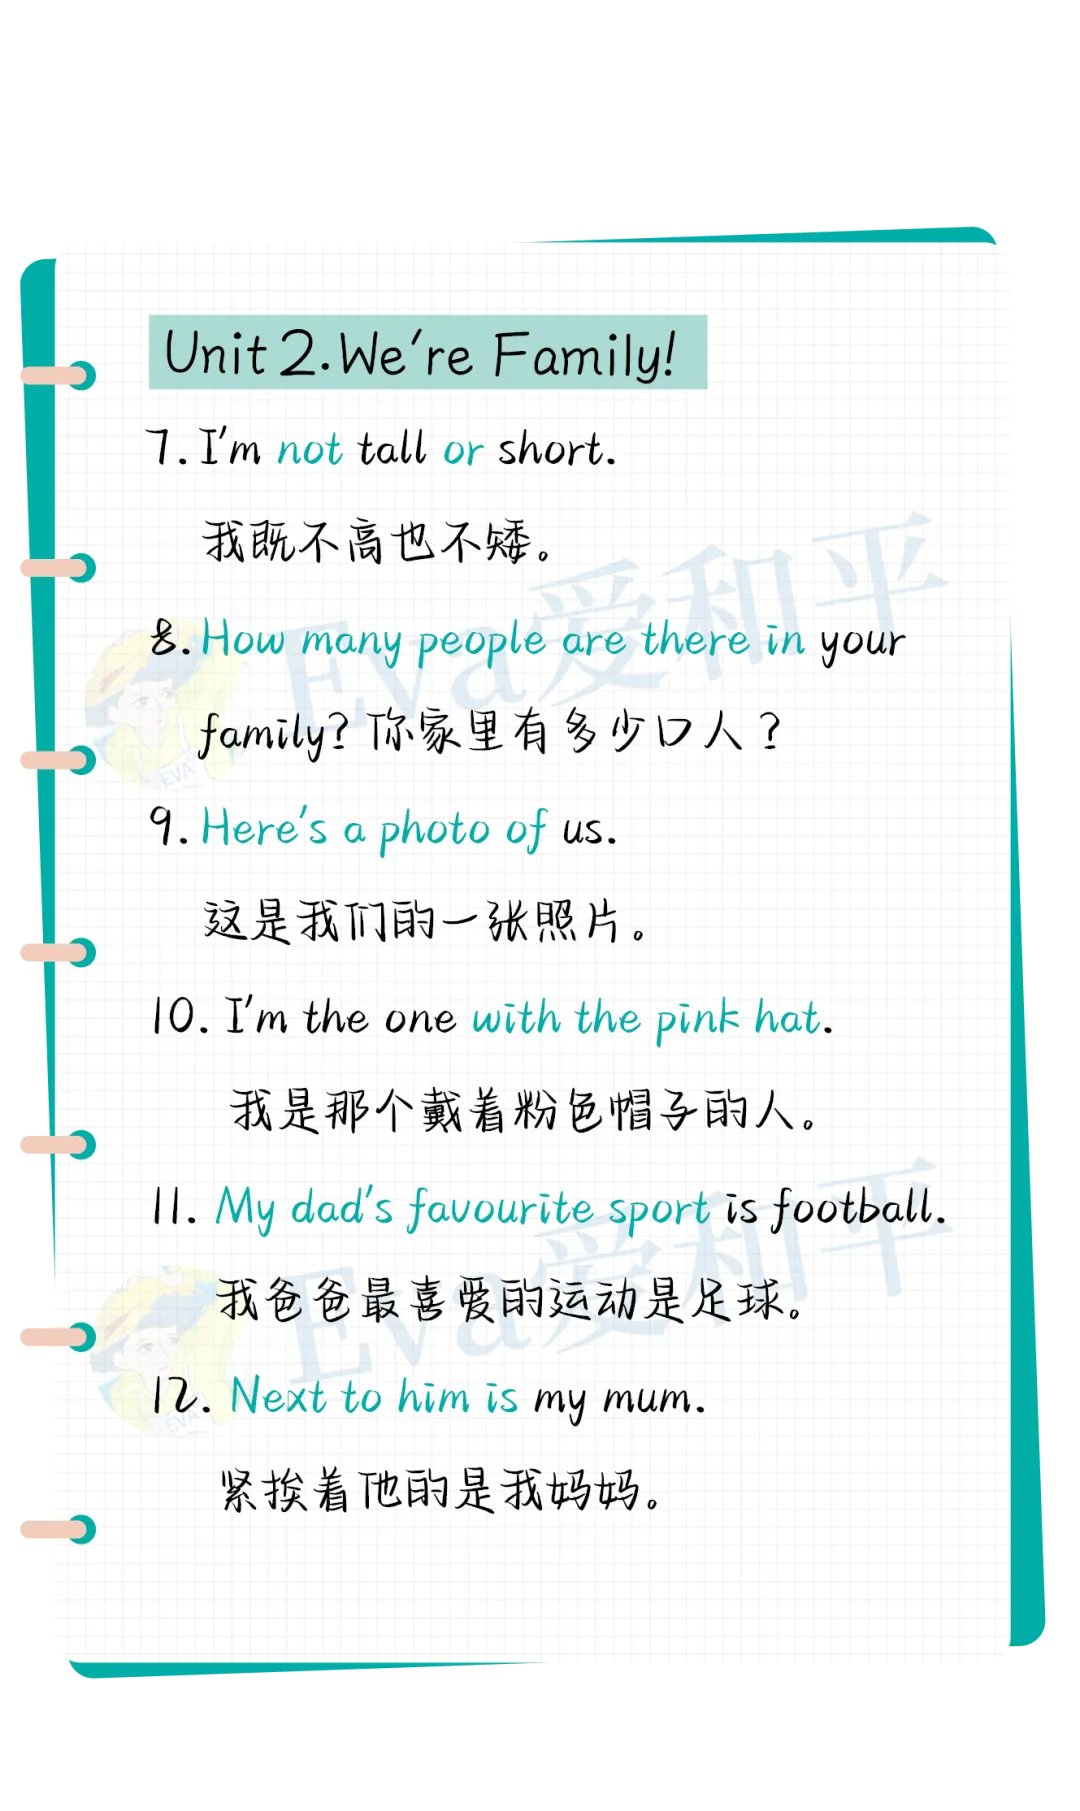 Unit 2. We're Family!
7. I'm not tall or short.
我既不高也不矮。
8. How many people are there in your
family? 你家里有多少口人？
9. Here's a photo of us.
这是我们的一张照片。
10. I'm the one with the pink hat.
我是那个戴着粉色帽子的人。
11. My dad's favourite sport is football.
我爸爸最喜爱的运动是足球。
12. Next to him is my mum.
紧挨着他的是我妈妈。
Eva爱和平
EVA
Eva爱和平
EVA